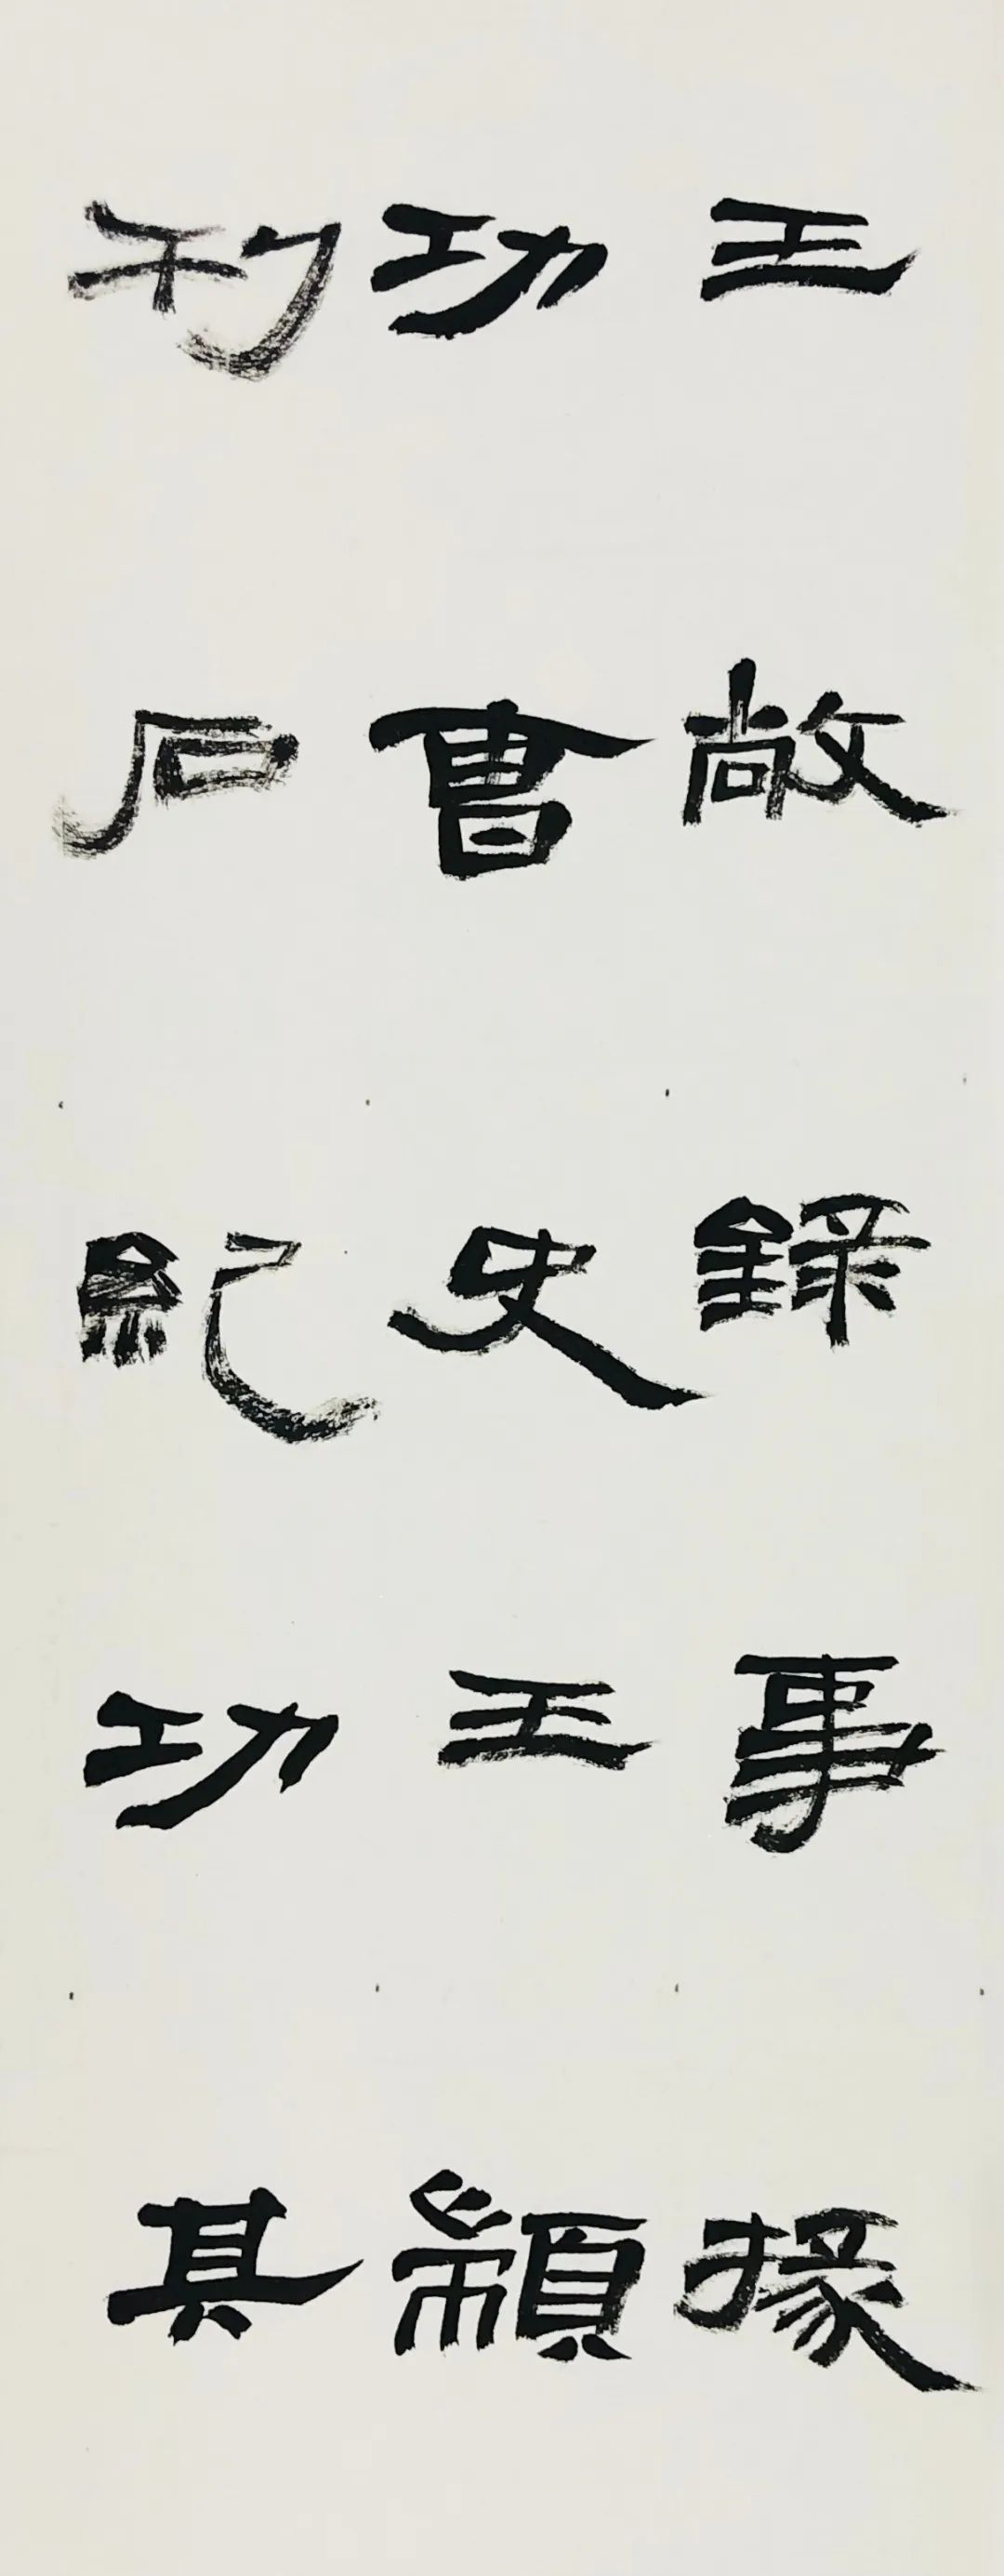 王敞錄事掾
功曹史王顓
刊石紀功其